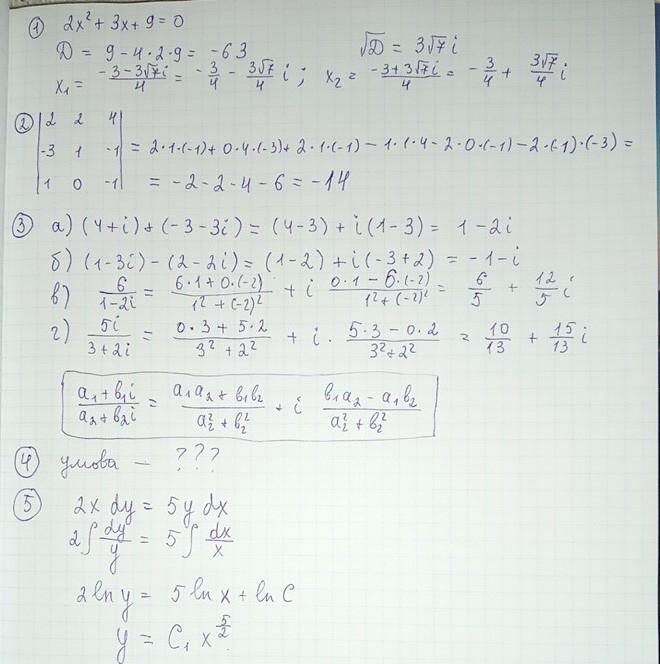 ① 2x² + 3x + 9 = 0
D = 9 - 4·2·9 = -63 √D = 3√7 i
x₁ = (-3-3√7i)/4 = -3/4 - 3√7/4 i ; x₂ = (-3+3√7i)/4 = -3/4 + 3√7/4 i
② |2 2 4|
|-3 1 -1| = 2·1·(-1) + 0·4·(-3) + 2·1·(-1) - 1·1·4 - 2·0·(-1) - 2·(-1)·(-3) =
|1 0 -1| = -2-2-4-6 = -14
③ а) (4+i) + (-3-3i) = (4-3) + i(1-3) = 1-2i
б) (1-3i) - (2-2i) = (1-2) + i(-3+2) = -1-i
в) 6/(1-2i) = (6·1+0·(-2))/(1²+(-2)²) + i (0·1-6·(-2))/(1²+(-2)²) = 6/5 + 12/5 i
г) 5i/(3+2i) = (0·3+5·2)/(3²+2²) + i · (5·3-0·2)/(3²+2²) = 10/13 + 15/13 i
(a₁+b₁i)/(a₂+b₂i) = (a₁a₂+b₁b₂)/(a₂²+b₂²) + i (b₁a₂-a₁b₂)/(a₂²+b₂²)
④ умова - ???
⑤ 2x dy = 5y dx
2∫ dy/y = 5∫ dx/x
2 ln y = 5 ln x + ln C
y = C₁ x^(5/2).